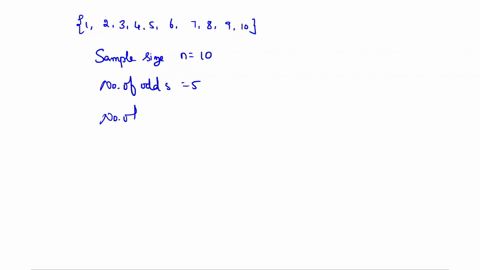 {1, 2, 3, 4, 5, 6, 7, 8, 9, 10}
Sample size n = 10
No. of odd s = 5
No. of